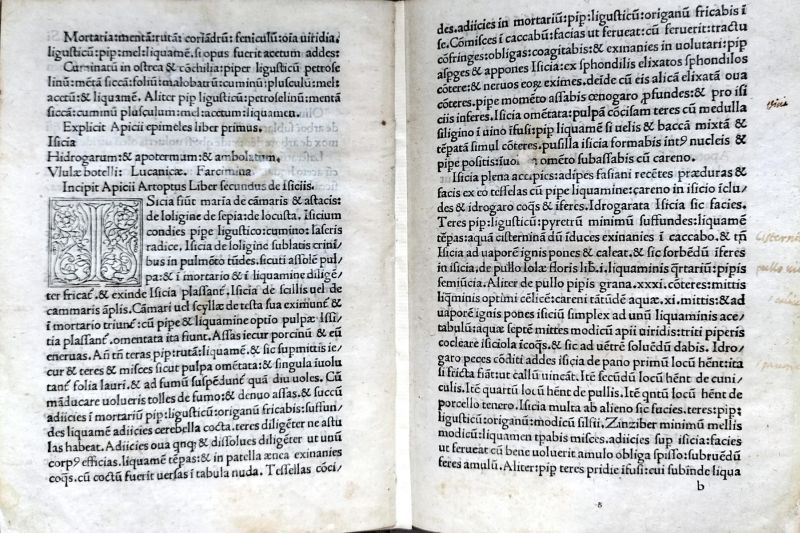 Mortaria:mentã:rutã: coriãdrũ: feniculũ:oĩa uiridia.
ligusticũ:pip:mel:liquamẽ.si opus fuerit acetum addes:
Cuminatũ in ostrea & cõchilia:piper ligusticũ petrose
linũ:mẽtã siccã:foliũ:malobatrũ:cuminũ:plusculũ:mel:
acetũ:& liquamẽ. Aliter pip ligusticũ:petroselinũ:mentã
siccã:cuminũ plusculum:mel:acetum:liquamen.
Explicit Apicii epimeles liber primus.
Isicia
Hidrogarum:& apotermum:& ambolatum.
Vlulæ botelli: Lucanicæ. Farcimina.
Incipit Apicii Artoptus Liber secundus de isiciis.
ISicia siũt maria de cãmaris & astacis:
de loligine de sepia:de locusta. Isicium
condies pipe ligustico:cumino: laseris
radice. Isicia de loligine sublatis crini/
bus in pulmẽto tũdes.sicuti assolẽ pul/
pa:& i mortario & i liquamine diligẽ/
ter fricat̃. & exinde Isicia plassant̃. Isicia de scillis uel de
cammaris ãplis. Cãmari uel scyllæ de testa sua eximunt̃ &
i mortario triunt̃: cũ pipe & liquamine optio pulpæ Isi/
tia plassant̃. omentata ita fiunt. Assas iecur porcinũ & eũ
eneruas. An̄ tn̄ teras pip:rutã:liquamẽ.& sic supmittis ie/
cur & teres & misces sicut pulpa omẽtata: & singula iuolu
tant̃ folia lauri. & ad fumũ suspẽdunt̃ quã diu uoles. Cũ
mãducare uolueris tolles de fumo: & denuo assas. & succũ
adiicies i mortariũ pip:ligusticũ:origanũ fricabis:suffun/
des liquamẽ adiicies cerebella cocta.teres diligẽter ne astu
las habeat. Adiicies oua qnq; & dissolues diligẽter ut unũ
corp9 efficias. liquamẽ tẽpas:& in patella ænea exinanies
coq̃s. cũ coctũ fuerit uersas i tabula nuda. Tessellas cõci/
des.adiicies in mortariũ:pip:ligusticũ:origanũ fricabis ĩ
se. Cõmisces i caccabũ:facias ut ferueat:cũ feruerit:tractu
cõfringes:obligas:coagitabis:& exinanies in uolutari:pip
aspges & appones Isicia:ex sphondilis elixatos sphondilos
cõtere:& neruos eoꝝ eximes.deĩde cũ eis alicã elixatã oua
cõteres. pipe momẽto assabis œnogaro pfundes:& pro isi
ciis inferes. Isicia omẽtata: pulpã cõcisam teres cũ medulla
siligino i uino ifusi:pip liquamẽ si uelis & baccã mixtã &
tẽpatã simul cõteres.pusilla isicia formabis int9 nucleis &
pipe positis:iuol omẽto subassabis cũ careno.
Isicia plena accipis:adipes fasiani recẽtes præduras &
facis ex eo tesselas cũ pipe liquamine:careno in isicio iclu/
des & idrogaro coq̃s & iferes. Idrogarata Isicia sic facies.
Teres pip:ligusticũ:pyretrũ minimũ suffundes:liquamẽ
tẽpas:aquã cisterninã dũ iduces exinanies i caccabo. & tn̄
Isicia ad uaporẽ ignis pones & caleat. & sic sorbẽdũ iferes
in isicia.de pullo lolæ floris lib.i.liquaminis qrtariũ:pipis
semiũcia. Aliter de pullo pipis grana.xxxi.cõteres:mittis
liq̃minis optimi cẽlicẽ:careni tãtũdẽ aquæ.xi.mittis:& ad
uaporẽ ignis pones isiciũ simplex ad unũ liquaminis ace/
tabulũ:aquæ septẽ mittes modicũ apii uiridis:triti piperis
cocleare isiciola icoq̃s:& sic ad uẽtrẽ soluẽdũ dabis. Idro/
garo peces cõditi addes isicia de pano primũ locũ hẽnt:ita
si fricta fiãt:ut callũ uincãt. Itẽ secũdũ locũ hẽnt de cuni/
culis. Itẽ quartũ locũ hẽnt de pullis. Itẽ qntũ locũ hẽnt de
porcello tenero. Isicia multa ab alieno sic fucies.teres:pip:
ligusticũ:origanũ:modicũ silfii. Zinziber minimũ mellis
modicũ:liquamen tpabis misces.adiicies sup isicia:facies
ut ferueat cũ bene uoluerit amulo obliga spisso:subruẽdũ
feres amulũ. Aliter:pip teres pridie ifusi:cui subinde liqua
b